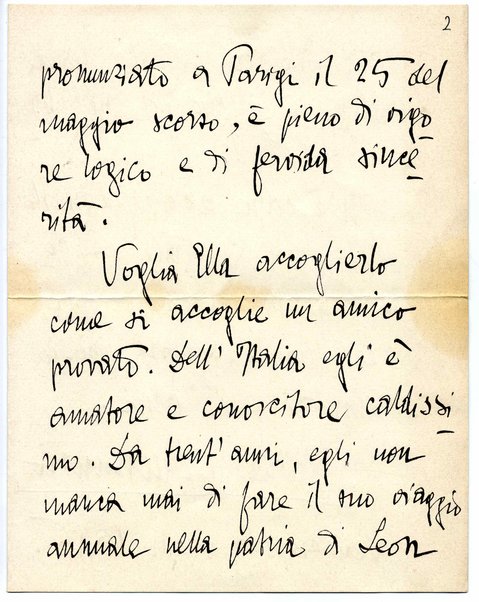 2
pronunziato a Parigi il 25 del
maggio scorso, è pieno di vigo
re logico e di fervida since
rità.
Voglia Ella accoglierlo
come si accoglie un amico
provato. Dell' Italia egli è
amatore e conoscitore caldissi
mo. Da trent' anni, egli non
manca mai di fare il suo viaggio
annuale nella patria di Leon